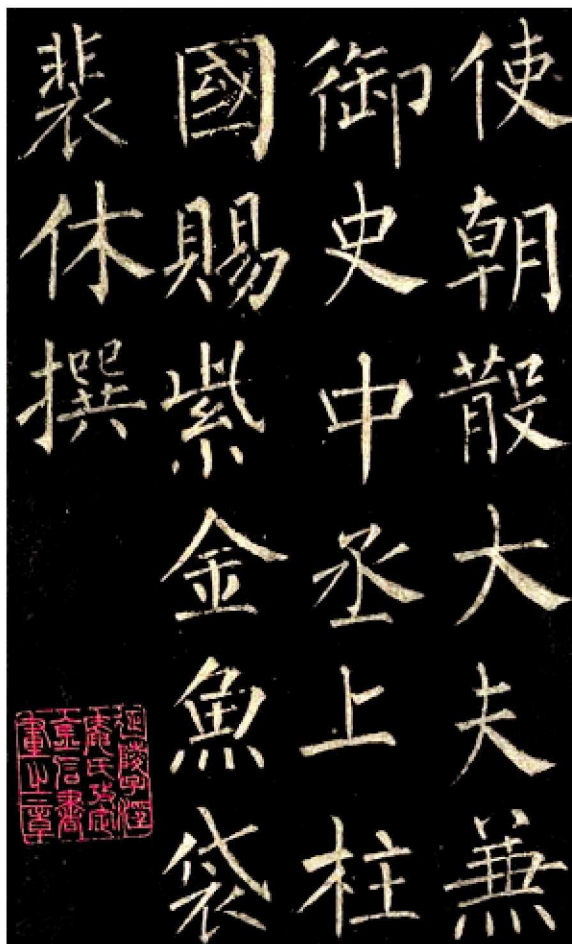 使朝散大夫兼
御史中丞上柱
國賜紫金魚袋
裴休撰